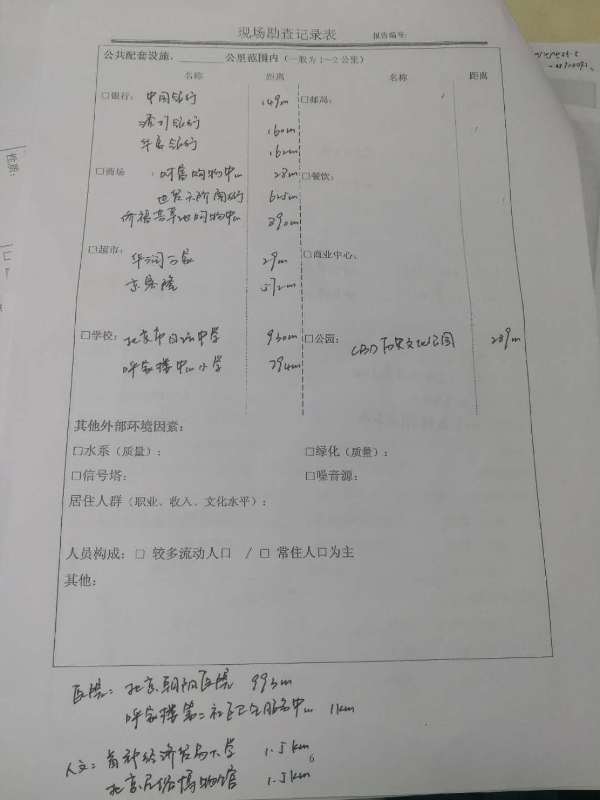 现场勘查记录表 报告编号:
公共配套设施, 公里范围内（一般为1~2公里）
名称 距离 名称 距离
□银行: 中国银行 149m □邮局:
银行 160m
华夏银行 162m
□商场 购物中心 28m □餐饮:
625m
侨福芳草地购物中心 290m
□超市: 华润万家 29m □商业中心:
京客隆 572m
□学校: 北京市日坛中学 930m □公园: CBD历史文化公园 289m
呼家楼中心小学 794m
其他外部环境因素:
□水系（质量）: □绿化（质量）:
□信号塔: □噪音源:
居住人群（职业、收入、文化水平）:
人员构成: □ 较多流动人口 / □ 常住人口为主
其他:
医院: 北京朝阳医院 993m
呼家楼第二社区卫生服务中心 1km
人文: 首都经济贸易大学 1.5km
北京民俗博物馆 1.5km
性质: